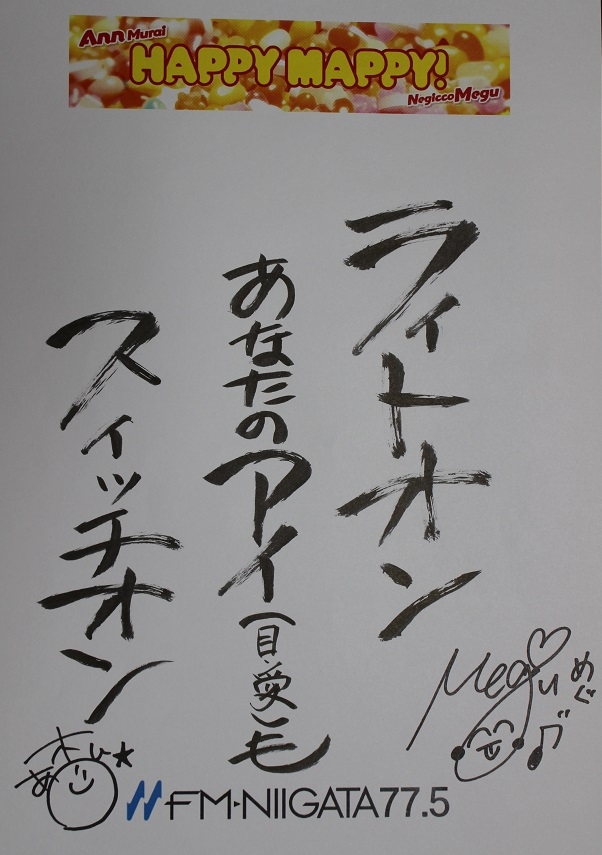 Ann Murai
HAPPY MAPPY!
Negicco Megu
ライトオン
あなたのアイ(目・愛)も
スイッチオン
Megu
めぐ
FM-NIIGATA 77.5